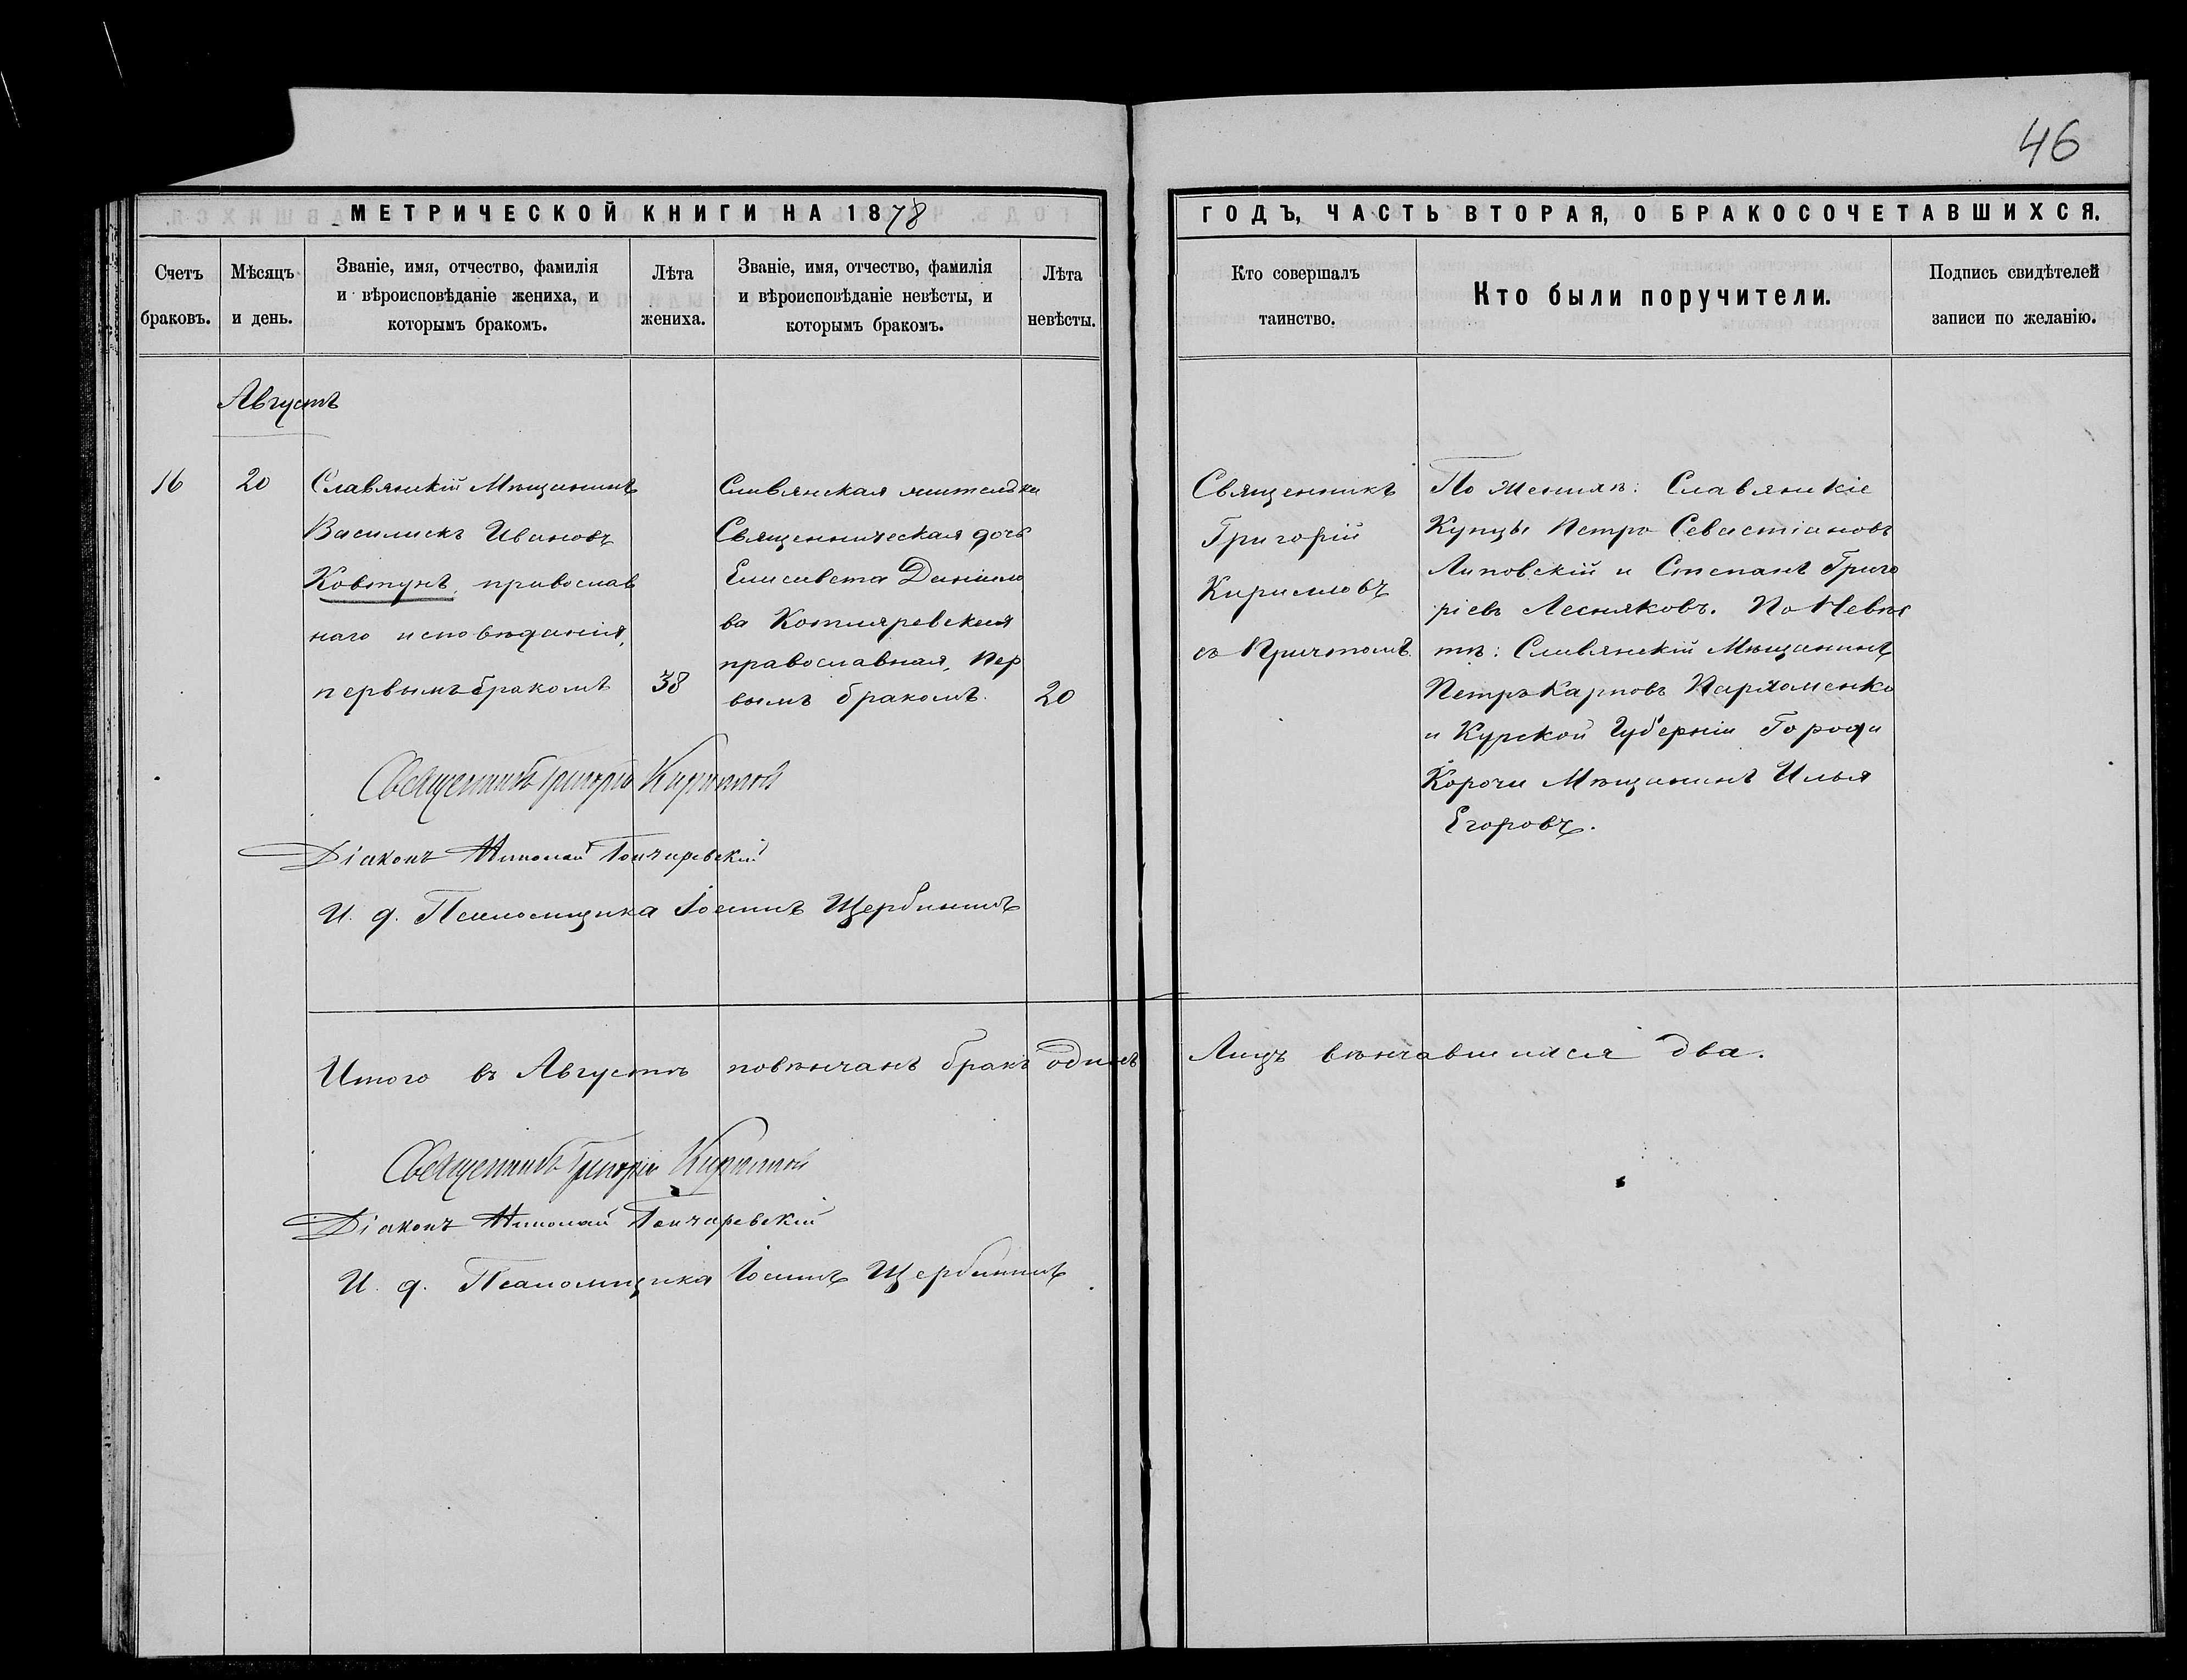 46
МЕТРИЧЕСКОЙ КНИГИ НА 1878
ГОДЪ, ЧАСТЬ ВТОРАЯ, О БРАКОСОЧЕТАВШИХСЯ.
Счетъ
браковъ.
Мѣсяцъ
и день.
Званіе, имя, отчество, фамилія
и вѣроисповѣданіе жениха, и
которымъ бракомъ.
Лѣта
жениха.
Званіе, имя, отчество, фамилія
и вѣроисповѣданіе невѣсты, и
которымъ бракомъ.
Лѣта
невѣсты.
Кто совершалъ
таинство.
Кто были поручители.
Подпись свидѣтелей
записи по желанію.
Августъ
16
20
Славянскій Мѣщанинъ
Василискъ Ивановъ
Ковтунъ, православ
наго исповѣданія,
первымъ бракомъ
38
Славянская жителька
Священническая дочь
Елисавета Даніило
ва Котляревская
православная, пер
вымъ бракомъ.
20
Священникъ
Григорій
Кирилловъ
съ Причтомъ.
По Женихѣ: Славянскіе
Купцы Петръ Севастіановъ
Липовскій и Стефанъ Григо
ріевъ Лесняковъ. По Невѣс
тѣ: Славянскій Мѣщанинъ
Петръ Карповъ Пархоменко
и Курской Губерніи Города
Корочи Мѣщанинъ Илья
Егоровъ.
Священникъ Григорій Кирилловъ
Діаконъ Николай Гончаревскій
И. д. Псаломщика Іосифъ Щербининъ
Итого въ Августѣ повѣнчанъ бракъ одинъ
Лицъ вѣнчавшихся два.
Священникъ Григорій Кирилловъ
Діаконъ Николай Гончаревскій
И. д. Псаломщика Іосифъ Щербининъ